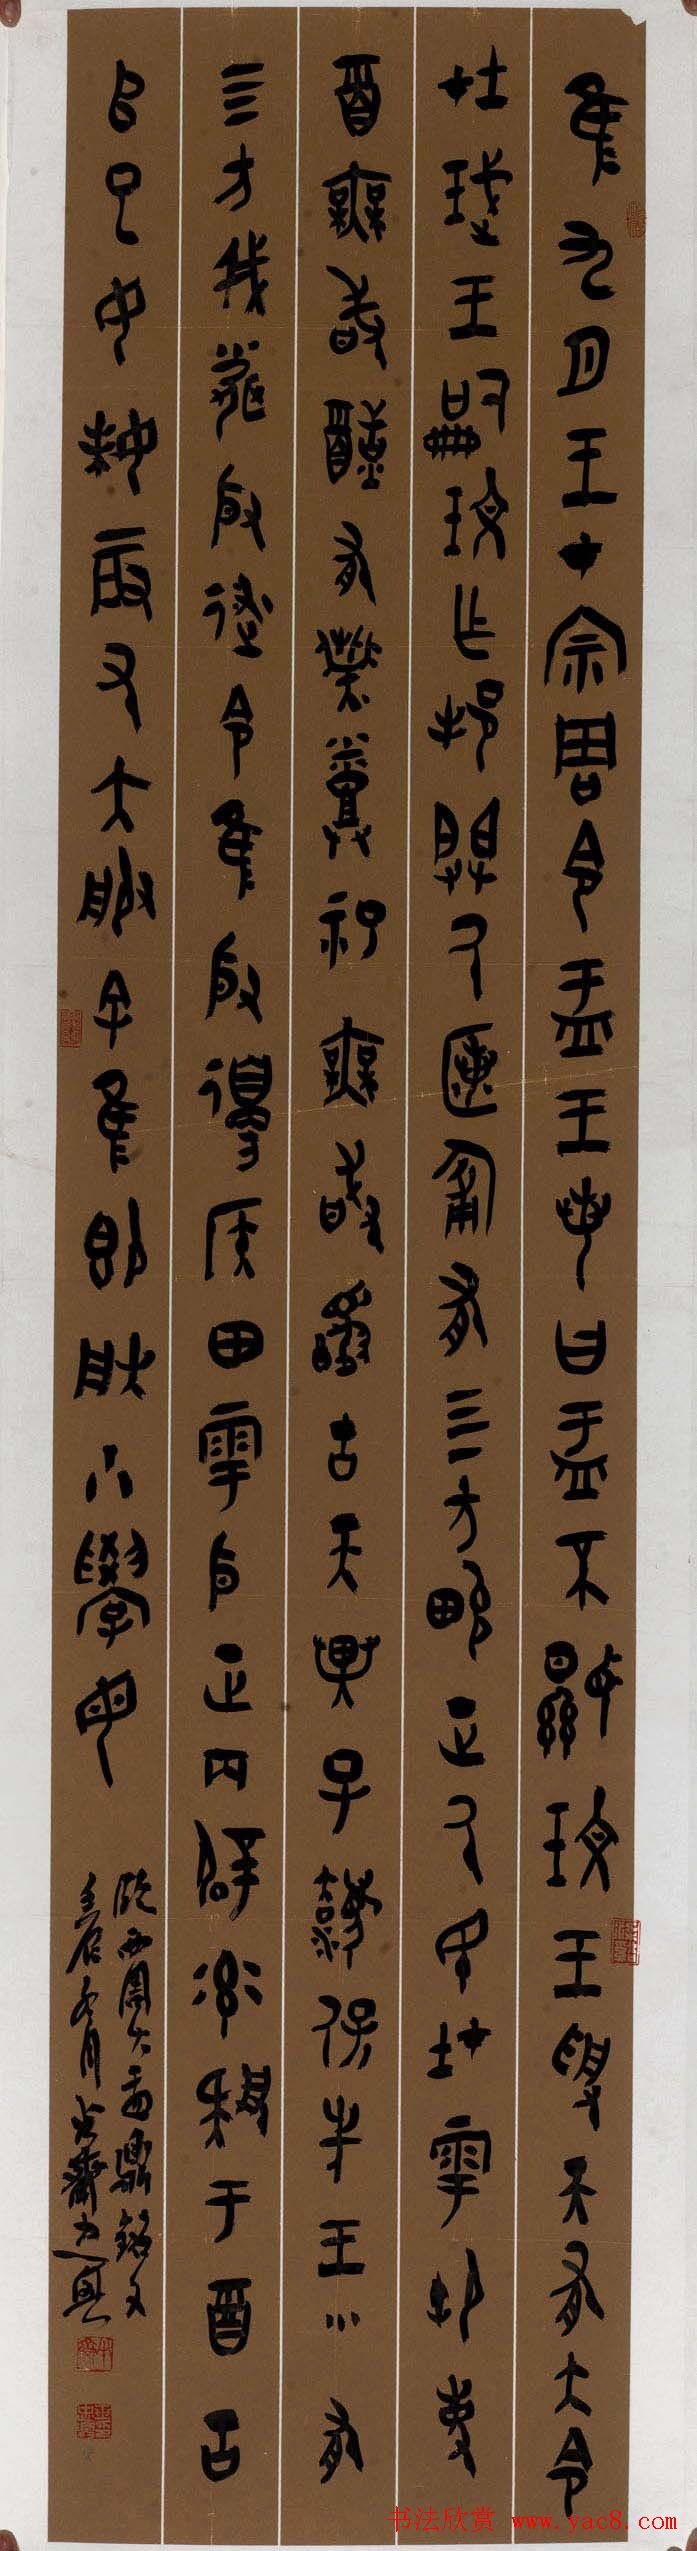 隹九月王才宗周令盂王若曰盂不顯玟王受天有大令
在珷王嗣玟乍邦闢氒匿匍有四方畯正氒民在雩御事
酉無敢酖有祡蒸祀無敢擾古天異子灋保先王有
四方我聞殷述令隹殷邊侯田雩殷正百辟率肄于酉古
𠂤已女妹辰又大服余隹即朕小學女
臨西周大盂鼎銘文
书法欣赏 www.yac8.com